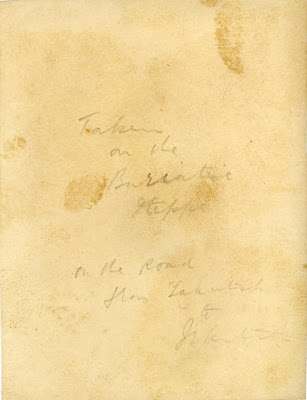 Taken
on the
Buriatic
Steppe
on the Road
from Yakutsk
to